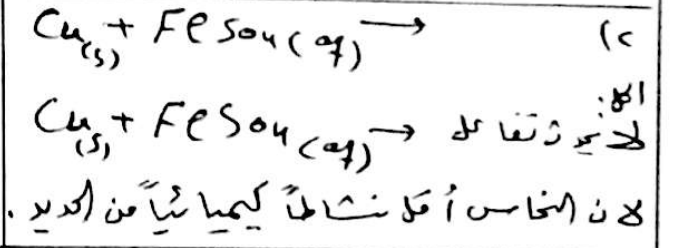 (c Cu(s) + FeSO4(aq) →
الحل:
Cu(s) + FeSO4(aq) → لا يحدث تفاعل
لان النحاس أقل نشاطاً كيميائياً من الحديد.